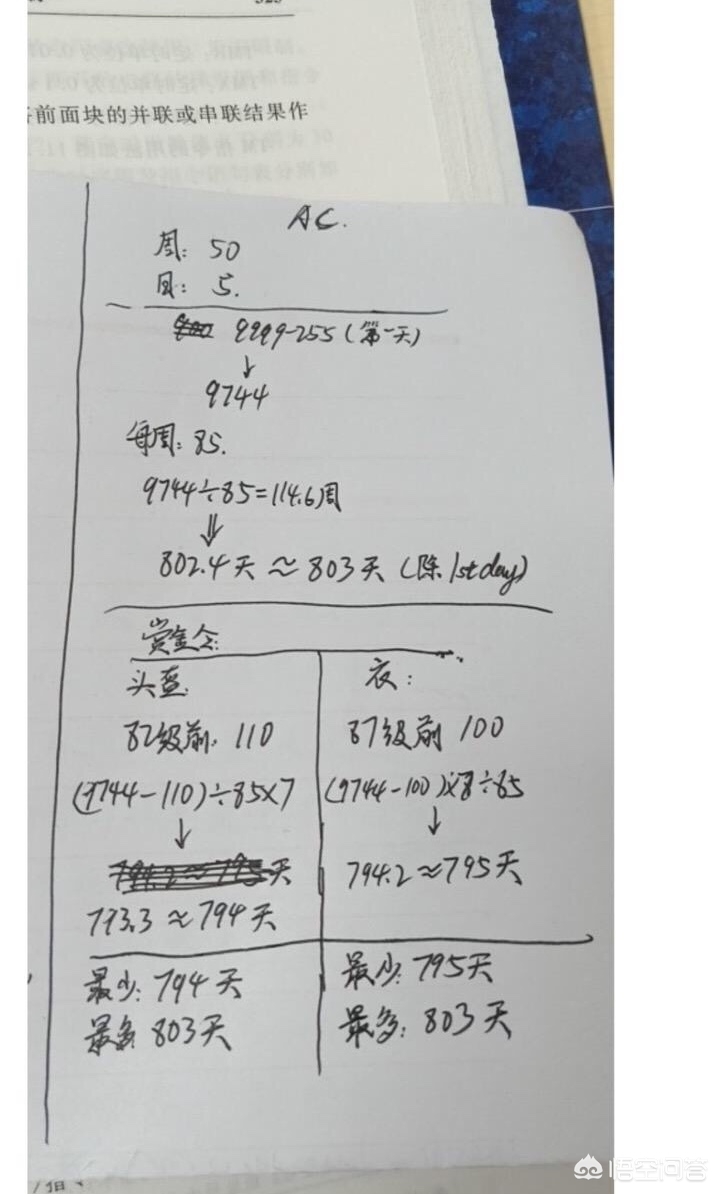 前面块的并联或串联结果作
AC.
周: 50
日: 5.
9999-255 (第一天)
↓
9744
每周: 85.
9744÷85=114.6周
⇓
802.4天 ≈ 803天 (除 1st day)
赏金令:
头盔:
82级前: 110
(9744-110)÷85×7
↓
794.2≈795天
793.3 ≈ 794天
最少: 794天
最多: 803天
衣:
87级前 100
(9744-100)×8÷85
↓
794.2≈795天
最少: 795天
最多: 803天
悟空问答